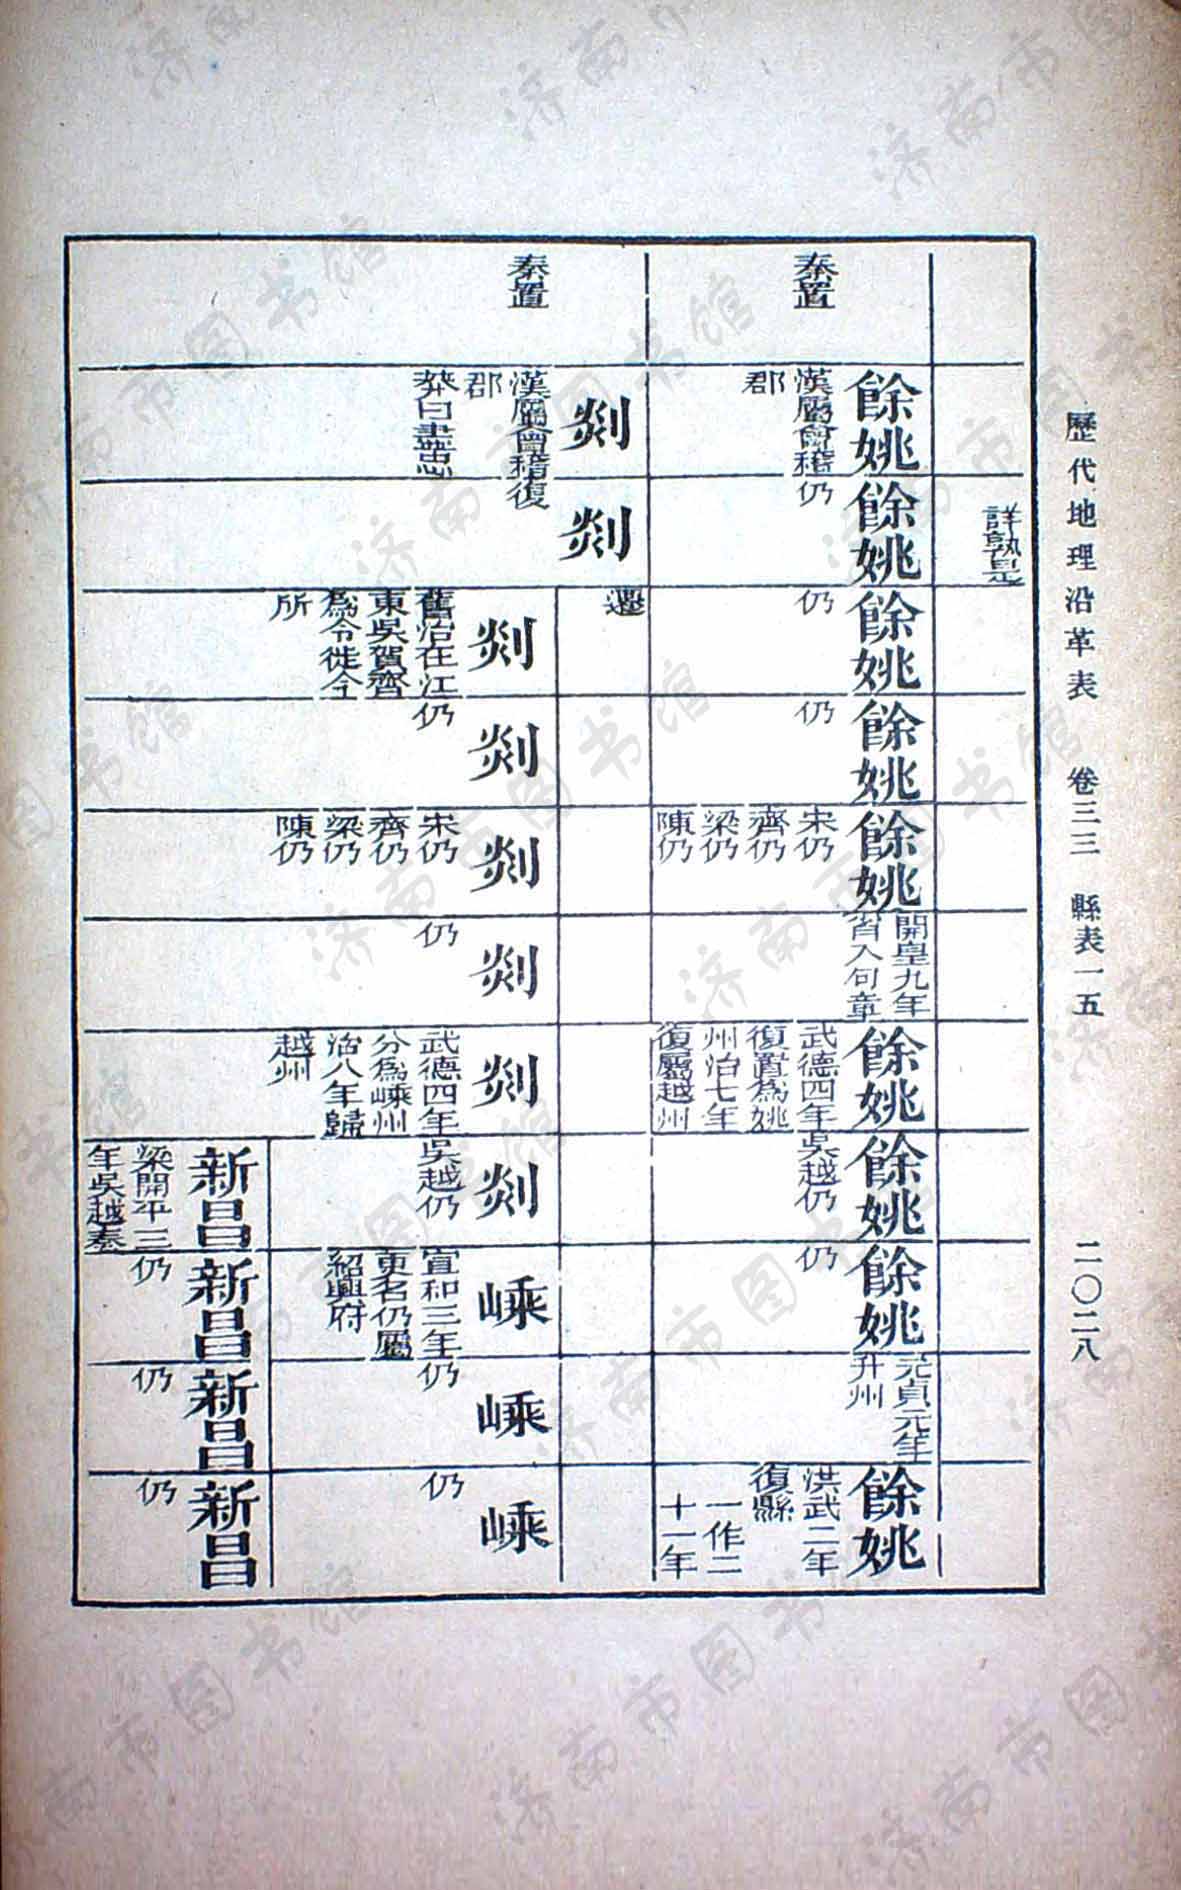 歷代地理沿革表 卷三三 縣表一五 二〇二八
詳孰是
秦置
餘姚
漢屬會稽
郡
餘姚
仍
餘姚
仍
餘姚
仍
餘姚
宋仍
齊仍
梁仍
陳仍
開皇九年
省入句章
餘姚
武德四年
復置為姚
州治七年
復屬越州
餘姚
吳越仍
餘姚
仍
元貞元年
升州
餘姚
洪武二年
復縣
一作二
十一年
秦置
剡
漢屬會稽
郡
莽曰盡忠
剡
復
遷
剡
舊治在江
東吳賀齊
為令徙今
所
剡
仍
剡
宋仍
齊仍
梁仍
陳仍
剡
仍
剡
武德四年
分為嵊州
治八年歸
越州
剡
吳越仍
嵊
宣和三年
更名仍屬
紹興府
嵊
仍
嵊
仍
新昌
梁開平三
年吳越奏
新昌
仍
新昌
仍
新昌
仍
济南市图书馆